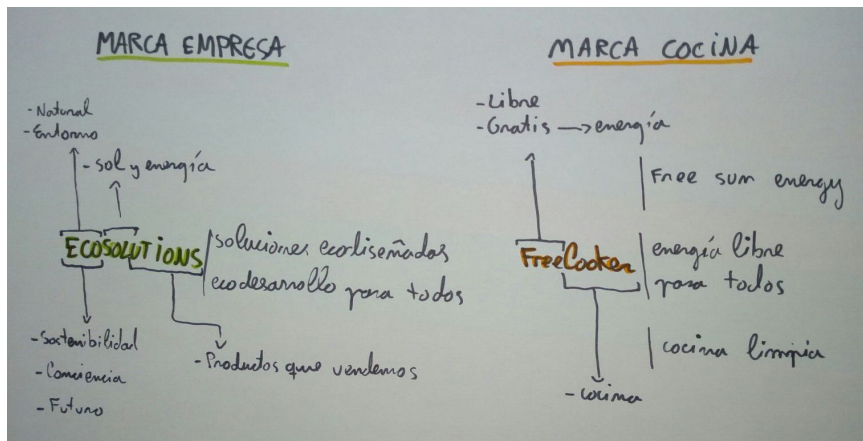 MARCA EMPRESA
- Natural
- Entorno
- sol y energía
ECOSOLUTIONS
soluciones ecodiseñadas
ecodesarrollo para todos
- Sostenibilidad
- Conciencia
- Futuro
- Productos que vendemos
MARCA COCINA
- Libre
- Gratis → energía
Free sun energy
FreeCooker
energía libre
para todos
cocina limpia
- cocina